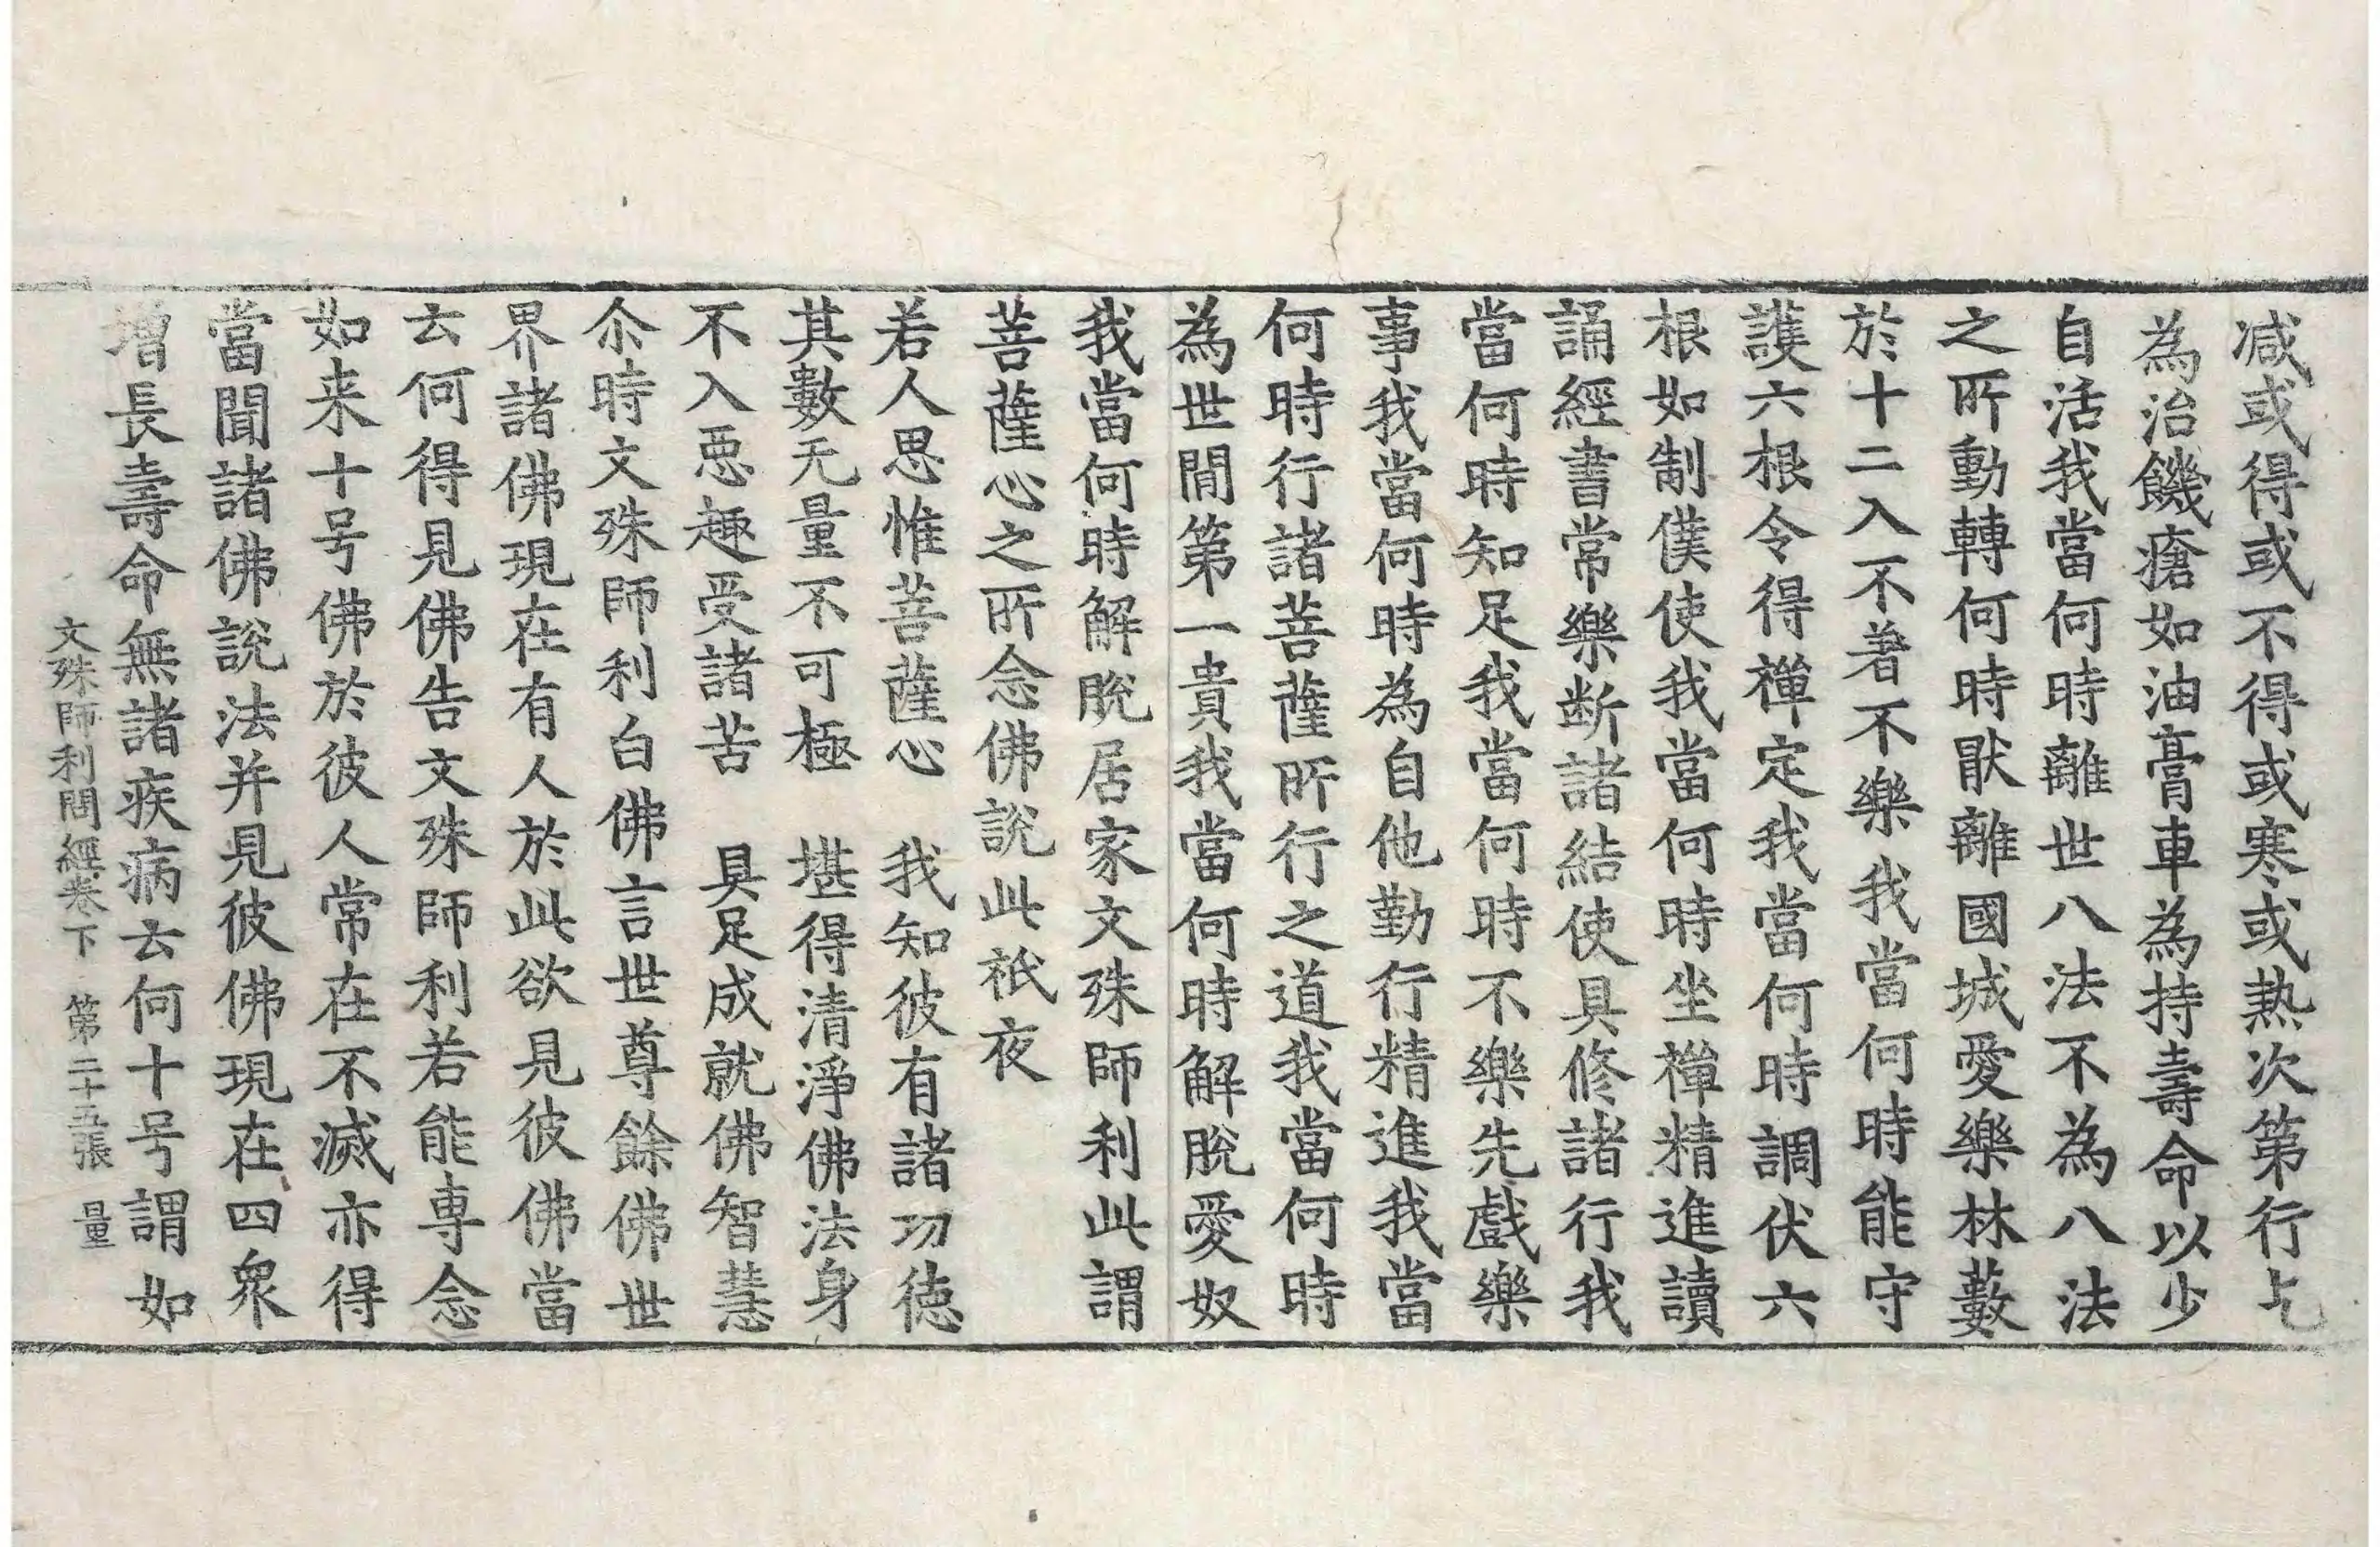 减或得或不得或寒或热次第行乞
為治饑瘡如油膏車為持壽命以少
自活我當何時離世八法不為八法
之所動轉何時猒離國城愛樂林藪
於十二入不著不樂我當何時能守
護六根令得禪定我當何時調伏六
根如制僕使我當何時坐禪精進讀
誦經書常樂断諸結使具修諸行我
當何時知足我當何時不樂先戲樂
事我當何時為自他勤行精進我當
何時行諸菩薩所行之道我當何時
為世間第一貴我當何時解脫愛奴
我當何時解脫居家文殊師利此謂
菩薩心之所念佛說此祇夜
若人思惟菩薩心　我知彼有諸功徳
其數无量不可極　堪得清淨佛法身
不入惡趣受諸苦　具足成就佛智慧
尒時文殊師利白佛言世尊餘佛世
界諸佛現在有人於此欲見彼佛當
云何得見佛告文殊師利若能専念
如来十号佛於彼人常在不滅亦得
當聞諸佛說法并見彼佛現在四衆
增長壽命無諸疾病云何十号謂如
文殊師利問經卷下　第二十五張　量